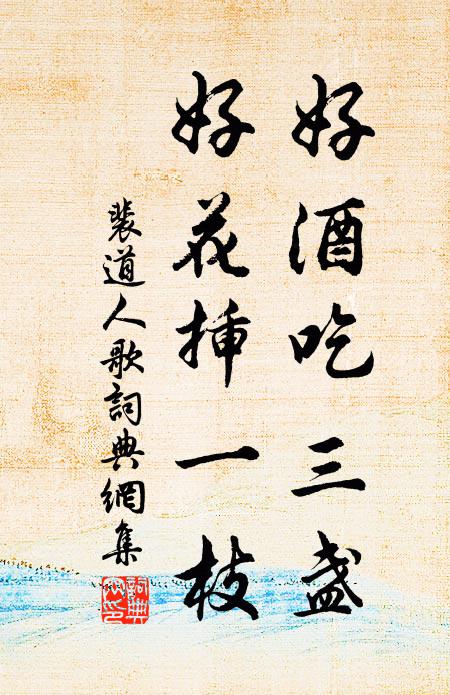 好酒吃三盏
好花插一枝
裴道人歌詞典網集
詞典